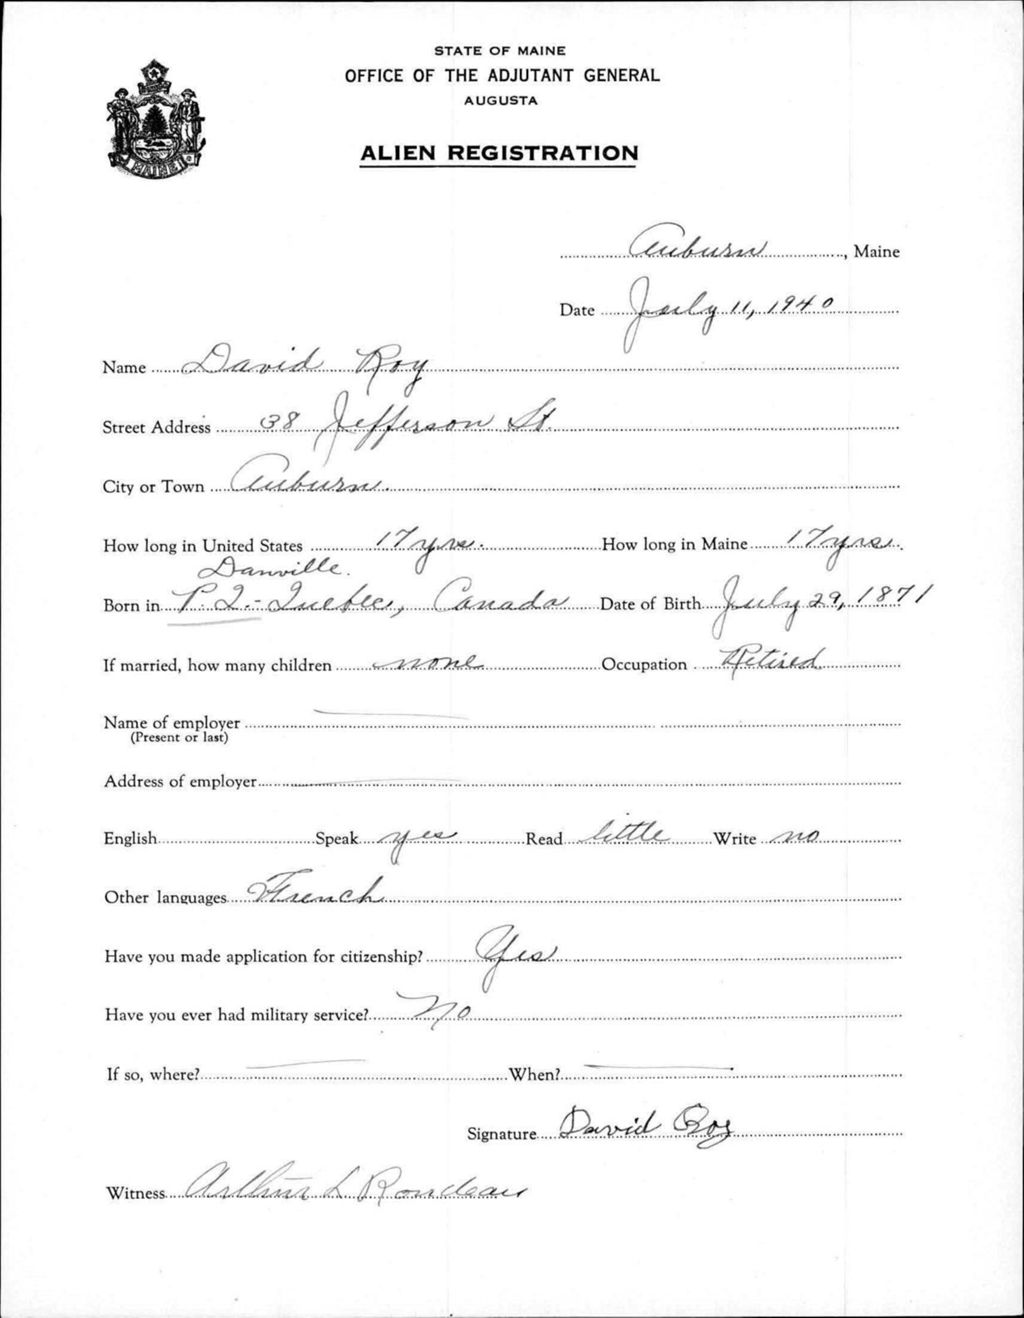 STATE OF MAINE
OFFICE OF THE ADJUTANT GENERAL
AUGUSTA
ALIEN REGISTRATION
MAINE
Auburn, Maine
Date July 11, 1940
Name David Roy
Street Address 38 Jefferson St.
City or Town Auburn.
How long in United States 17 yrs. How long in Maine 17 yrs.
Danville.
Born in P. Q. - Quebec, Canada Date of Birth July 29, 1871
If married, how many children none Occupation Retired
Name of employer
(Present or last)
Address of employer
English Speak yes Read little Write no
Other languages French
Have you made application for citizenship? Yes
Have you ever had military service? No
If so, where? When?
Signature David Roy
Witness Arthur L Rondeau